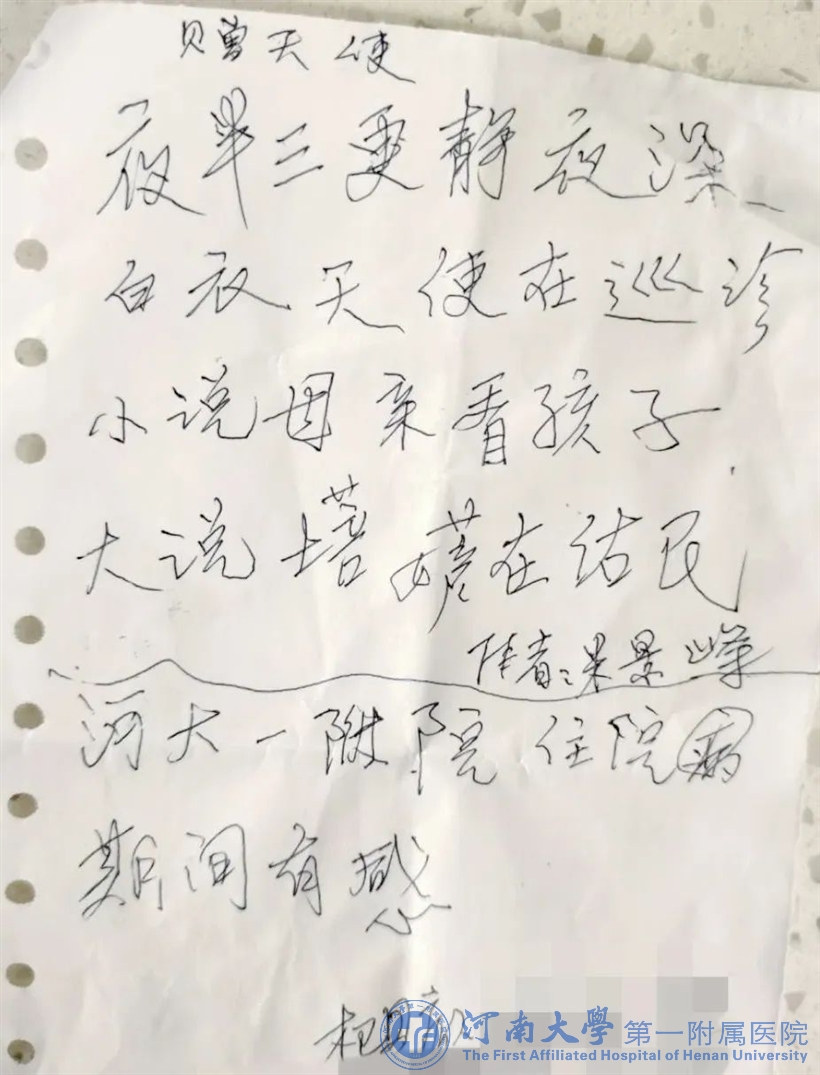 赠天使
夜半三更静夜深
白衣天使在巡诊
小说母亲看孩子
大说 在访民
作者:景峰
河大一附院 住院病
期间有感
河南大学第一附属医院
The First Affiliated Hospital of Henan University